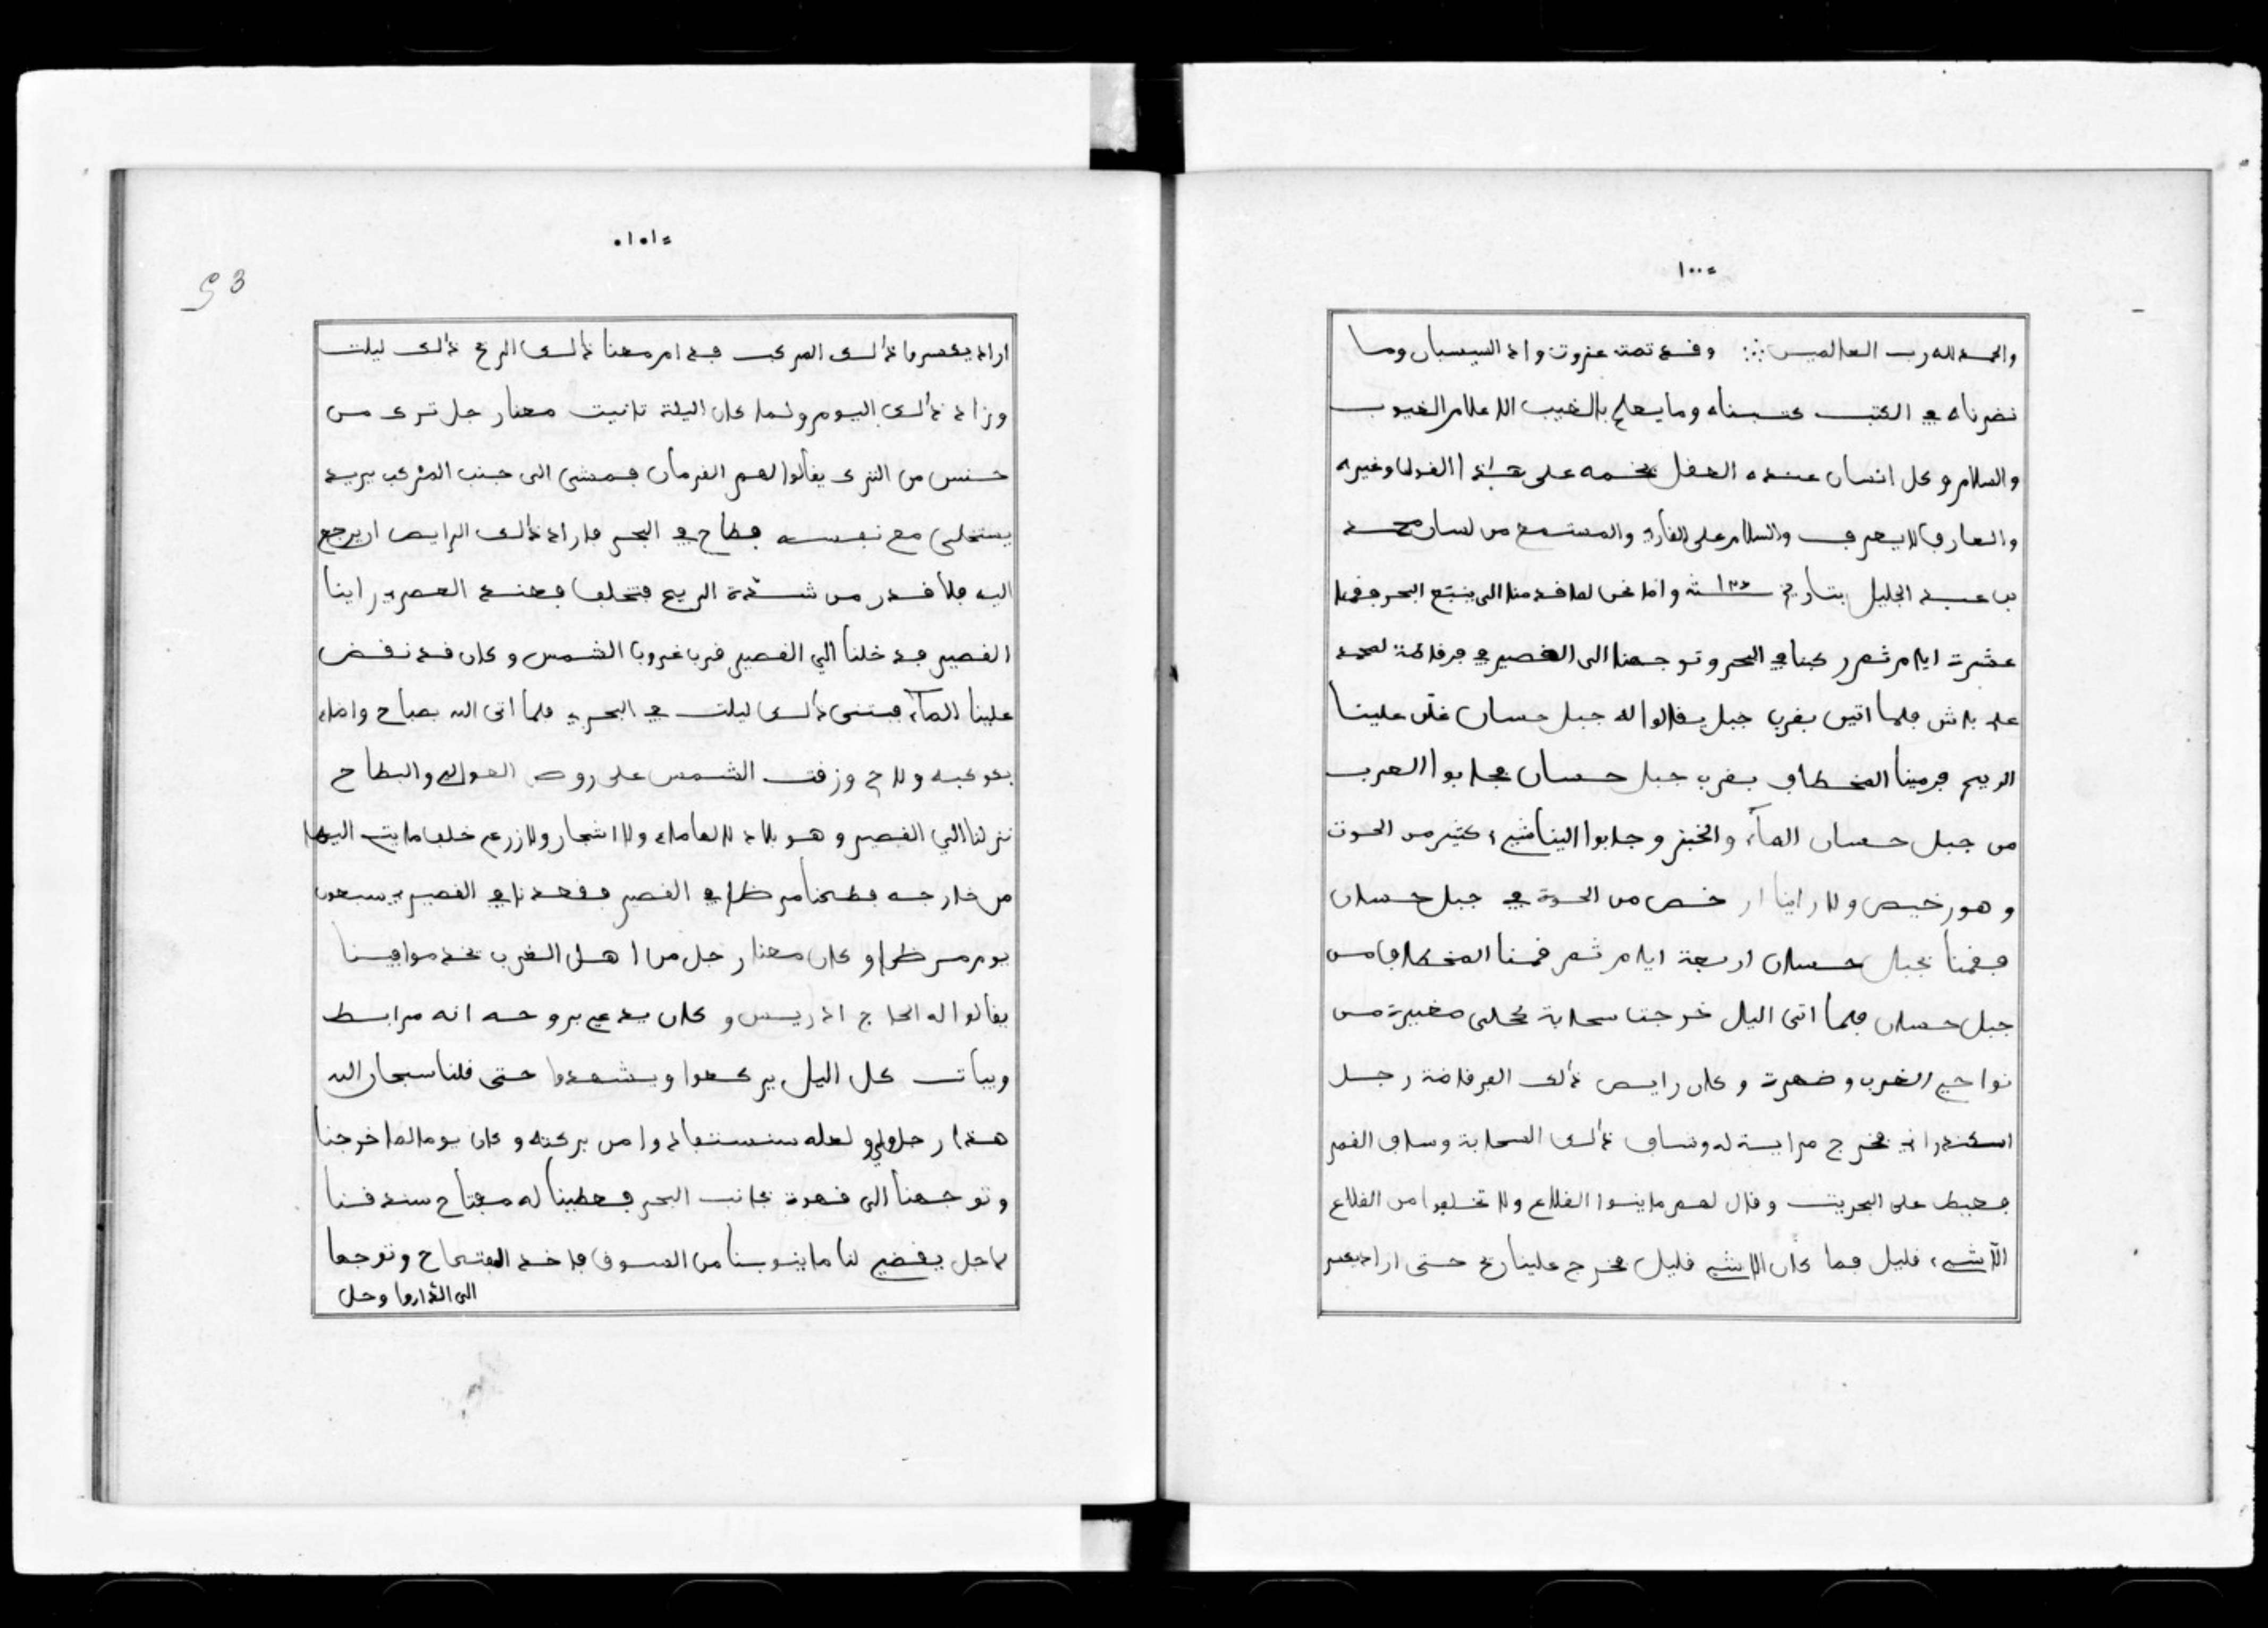 ١٠٠
والحمد لله رب العالمين وقد تمت غزوت واد السيسبان وما
نضرناه في الكتب كتبناه وما يعلم بالغيب الا علام الغيوب
والسلام وكل انسان عنده العقل يخممه على هذا القول وغيره
والعارف لا يعرف والسلام على القارء والمستمع من لسان محمد
بن عبد الجليل بتاريخ وانا نحن لما قدمنا الى ينبع البحر فقمنا
عشرة ايام ثم ركبنا في البحر وتوجهنا الى القصير في فرقاطة لمحمد
علي باش فلما اتين بقرب جبل يقالوا له جبل حسان غلق علينا
الريح فرمينا المخطاف بقرب جبل حسان فجابوا العرب
من جبل حسان المآء والخبز وجابوا الينا شيء كثير من الحوت
وهو رخيص ولا راينا ارخص من الحوت في جبل حسان
فقمنا بجبل حسان اربعة ايام ثم قمنا المخطاف من
جبل حسان فلما اتى اليل خرجت سحابة كحلى مغيرة من
نواحي الغرب وضهرة وكان رايس ذالك الفرقاضة رجل
اسكندراني فخرج مراية له وشاف ذالك السحابة وشاف القمر
فعيط على البحريت وقال لهم ماينوا القلاع ولا تخلوا من القلاع
الا شيء قليل فما كان الا شيء قليل فخرج علينا ريح حتى اراد يكسر
١٠١
93
اراد يكسر ما ذالك المركب فدامر معنا ذالك الريح ذالك ليلت
وزاد ذالك اليوم ولما كان اليلة ثانيت معنا رجل ترك من
جنس من الترك يقالوا لهم القرمان فمشى الى جنب المركب يريد
يستخلى مع نفسه فطاح في البحر فاراد ذالك الرايس ان يرجع
اليه فلا قدر من شدة الريح فتخلف فعند العصر راينا
القصير فدخلنا الي القصير قرب غروب الشمس وكان قد نقض
علينا المآء فبتنى ذالك ليلت في البحر فلما اتى الله بصباح واضاء
بكوكبه ولاح وزقت الشمس على روص العوالي والبطاح
نزلنا الي القصير وهو بلاد لا لها ماء ولا اشجار ولا زرع خلف ما يتي اليها
من خارجه فطحنا مرضا في القصير فقعدنا في القصير سبعون
يوم مرضا وكان معنا رجل من اهل الغرب
يقالوا له الحاج ادريس وكان يدعي بروحه انه مرابط
ويبات كل اليل يركعوا ويشهدوا حتى قلنا سبحان الله
هذا رجل ولي ولعله سنستنفادوا من بركته وكان يوما لما خرجنا
وتوجهنا الى قهوة بجانب البحر فعطينا له مفتاح سندقنا
لاجل يقضي لنا ما ينوبنا من السوق فاخذ المفتاح وتوجها
الى الدار وحل